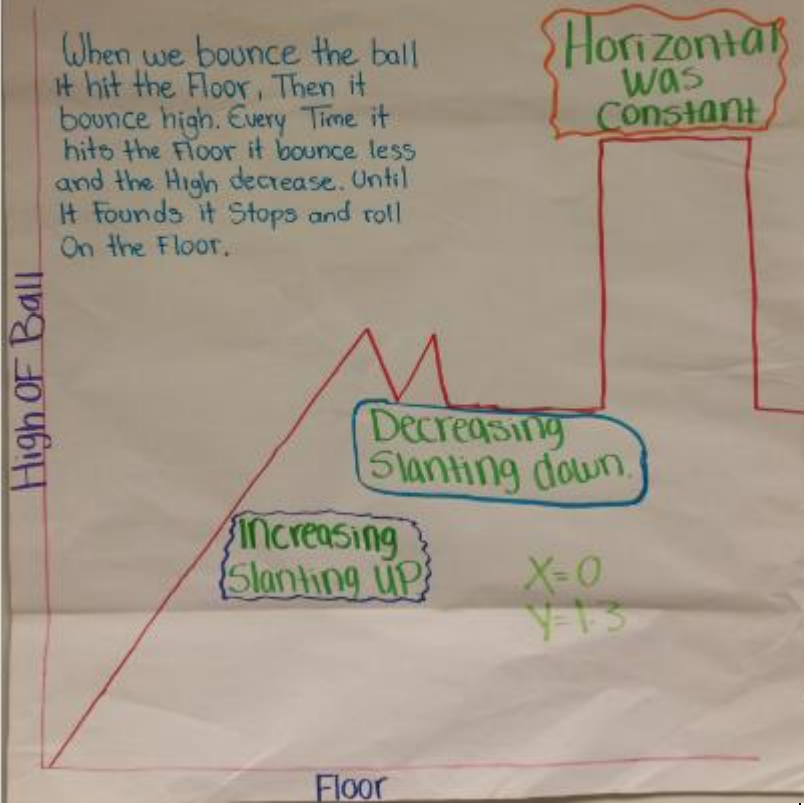 When we bounce the ball
It hit the Floor, Then it
bounce high. Every Time it
hits the Floor it bounce less
and the High decrease. Until
It Founds it Stops and roll
On the Floor.
Horizontal
was
Constant
High OF Ball
Decreasing
Slanting down.
Increasing
Slanting UP
X=0
Y=1.3
Floor